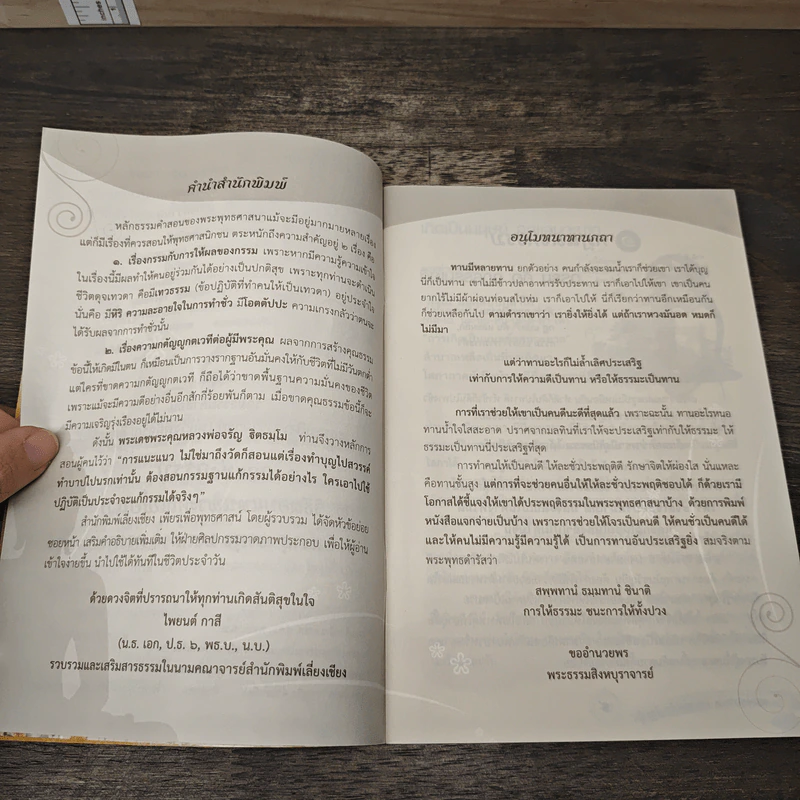 คำนำสำนักพิมพ์
หลักธรรมคำสอนของพระพุทธศาสนาแม้จะมีอยู่มากมายหลายเรื่อง
แต่ก็มีเรื่องที่ควรสอนให้พุทธศาสนิกชน ตระหนักถึงความสำคัญอยู่ ๒ เรื่อง คือ
๑. เรื่องกรรมกับการให้ผลของกรรม เพราะหากมีความรู้ความเข้าใจ
ในเรื่องนี้มีผลทำให้คนอยู่ร่วมกันได้อย่างเป็นปกติสุข เพราะทุกท่านจะดำเนิน
ชีวิตดุจเทวดา คือมีเทวธรรม (ข้อปฏิบัติที่ทำคนให้เป็นเทวดา) อยู่ประจำใจ
นั่นคือ มีหิริ ความละอายใจในการทำชั่ว มีโอตตัปปะ ความเกรงกลัวว่าตนจะ
ได้รับผลจากการทำชั่วนั้น
๒. เรื่องความกตัญญูกตเวทีต่อผู้มีพระคุณ ผลจากการสร้างคุณธรรม
ข้อนี้ให้เกิดมีในตน ก็เหมือนเป็นการวางรากฐานอันมั่นคงให้กับชีวิตที่ไม่มีวันตกต่ำ
แต่ใครที่ขาดความกตัญญูกตเวที ก็ถือได้ว่าขาดพื้นฐานความมั่นคงของชีวิต
เพราะแม้จะมีความดีอย่างอื่นอีกสักกี่ร้อยพันก็ตาม เมื่อขาดคุณธรรมข้อนี้ก็จะ
มีความเจริญรุ่งเรืองอยู่ได้ไม่นาน
ดังนั้น พระเดชพระคุณหลวงพ่อจรัญ ฐิตธมฺโม ท่านจึงวางหลักการ
สอนผู้คนไว้ว่า "การแนะแนว ไม่ใช่มาถึงวัดก็สอนแต่เรื่องทำบุญไปสวรรค์
ทำบาปไปนรกเท่านั้น ต้องสอนกรรมฐานแก้กรรมได้อย่างไร ใครเอาไปใช้
ปฏิบัติเป็นประจำจะแก้กรรมได้จริงๆ"
สำนักพิมพ์เลี่ยงเชียง เพียรเพื่อพุทธศาสน์ โดยผู้รวบรวม ได้จัดหัวข้อย่อย
ซอยหน้า เสริมคำอธิบายเพิ่มเติม ให้ฝ่ายศิลปกรรมวาดภาพประกอบ เพื่อให้ผู้อ่าน
เข้าใจง่ายขึ้น นำไปใช้ได้ทันทีในชีวิตประจำวัน
ด้วยดวงจิตที่ปรารถนาให้ทุกท่านเกิดสันติสุขในใจ
ไพยนต์ กาสี
(น.ธ. เอก, ป.ธ. ๖, พธ.บ., น.บ.)
รวบรวมและเสริมสารธรรมในนามคณาจารย์สำนักพิมพ์เลี่ยงเชียง
อนุโมทนาทานกถา
ทานมีหลายทาน ยกตัวอย่าง คนกำลังจะจมน้ำเราก็ช่วยเขา เราได้บุญ
นี่ก็เป็นทาน เขาไม่มีข้าวปลาอาหารรับประทาน เราก็เอาไปให้เขา เขาเป็นคน
ยากไร้ไม่มีผ้าผ่อนท่อนสไบห่ม เราก็เอาไปให้ นี่ก็เรียกว่าทานอีกเหมือนกัน
ก็ช่วยเหลือกันไป ตามตำราเขาว่า เรายิ่งให้ยิ่งได้ แต่ถ้าเราหวงมันอด หมดก็
ไม่มีมา
แต่ว่าทานอะไรก็ไม่ล้ำเลิศประเสริฐ
เท่ากับการให้ความดีเป็นทาน หรือให้ธรรมะเป็นทาน
การที่เราช่วยให้เขาเป็นคนดีนะดีที่สุดแล้ว เพราะฉะนั้น ทานอะไรหนอ
ทานน้ำใจใสสะอาด ปราศจากมลทินที่เราให้จะประเสริฐเท่ากับให้ธรรมะ ให้
ธรรมะเป็นทานนี่ประเสริฐที่สุด
การทำคนให้เป็นคนดี ให้ละชั่วประพฤติดี รักษาจิตให้ผ่องใส นั่นแหละ
คือทานชั้นสูง แต่การที่จะช่วยคนอื่นให้ให้ละชั่วประพฤติชอบได้ ก็ด้วยเรามี
โอกาสได้ชี้แจงให้เขาได้ประพฤติธรรมในพระพุทธศาสนาบ้าง ด้วยการพิมพ์
หนังสือแจกจ่ายเป็นบ้าง เพราะการช่วยให้โจรเป็นคนดี ให้คนชั่วเป็นคนดีได้
และให้คนไม่มีความรู้มีความรู้ได้ เป็นการทานอันประเสริฐยิ่ง สมจริงตาม
พระพุทธดำรัสว่า
สพฺพทานํ ธมฺมทานํ ชินาติ
การให้ธรรมะ ชนะการให้ทั้งปวง
ขออำนวยพร
พระธรรมสิงหบุราจารย์